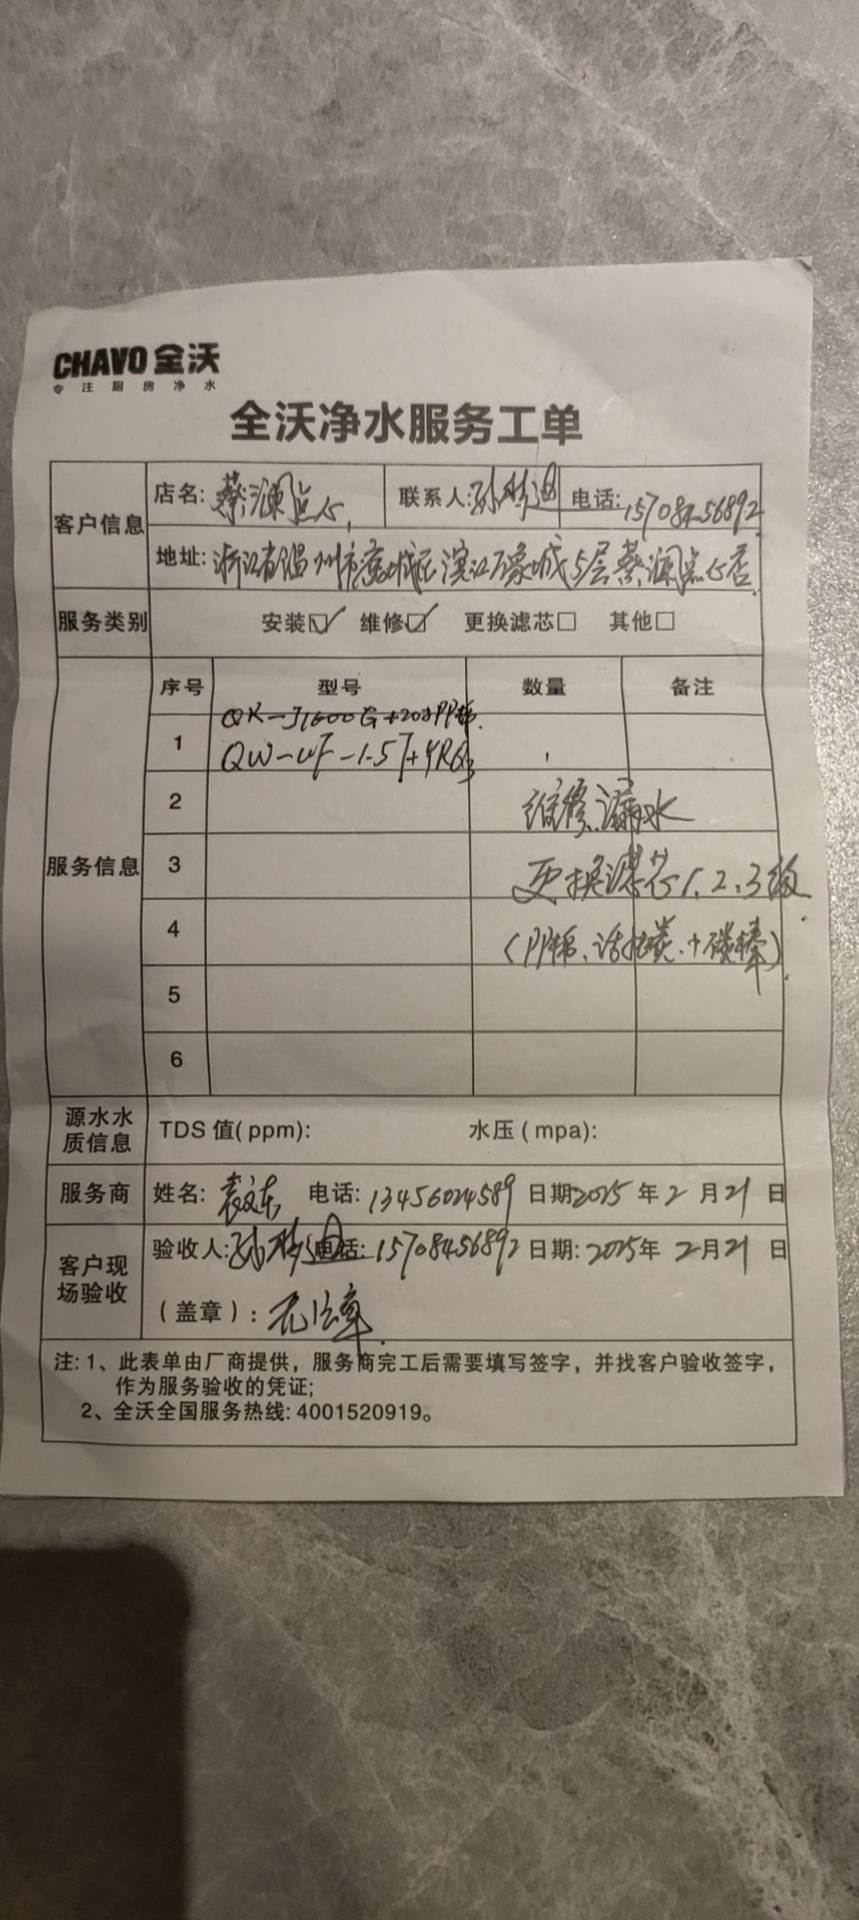 CHAVO 全沃
专注厨房净水
全沃净水服务工单
客户信息 店名: 蔡澜点心 联系人: 孙 电话: 15708456892
地址: 浙江省温州市鹿城区滨江万象城5层蔡澜点心店
服务类别 安装☑ 维修☑ 更换滤芯□ 其他□
服务信息 序号 型号 数量 备注
QK-J1600G+20寸PP棉
1 QW-UF-1.5T+
2 维修漏水
3 更换滤芯1、2、3级
4 (PP棉、活性碳+碳棒)
5
6
源水水质信息 TDS 值(ppm): 水压(mpa):
服务商 姓名: 袁文东 电话: 13456024589 日期2025年2月21日
客户现场验收 验收人: 孙 电话: 15708456892 日期: 2025年2月21日
(盖章): 无公章
注: 1、此表单由厂商提供，服务商完工后需要填写签字，并找客户验收签字，
作为服务验收的凭证;
2、全沃全国服务热线: 4001520919。